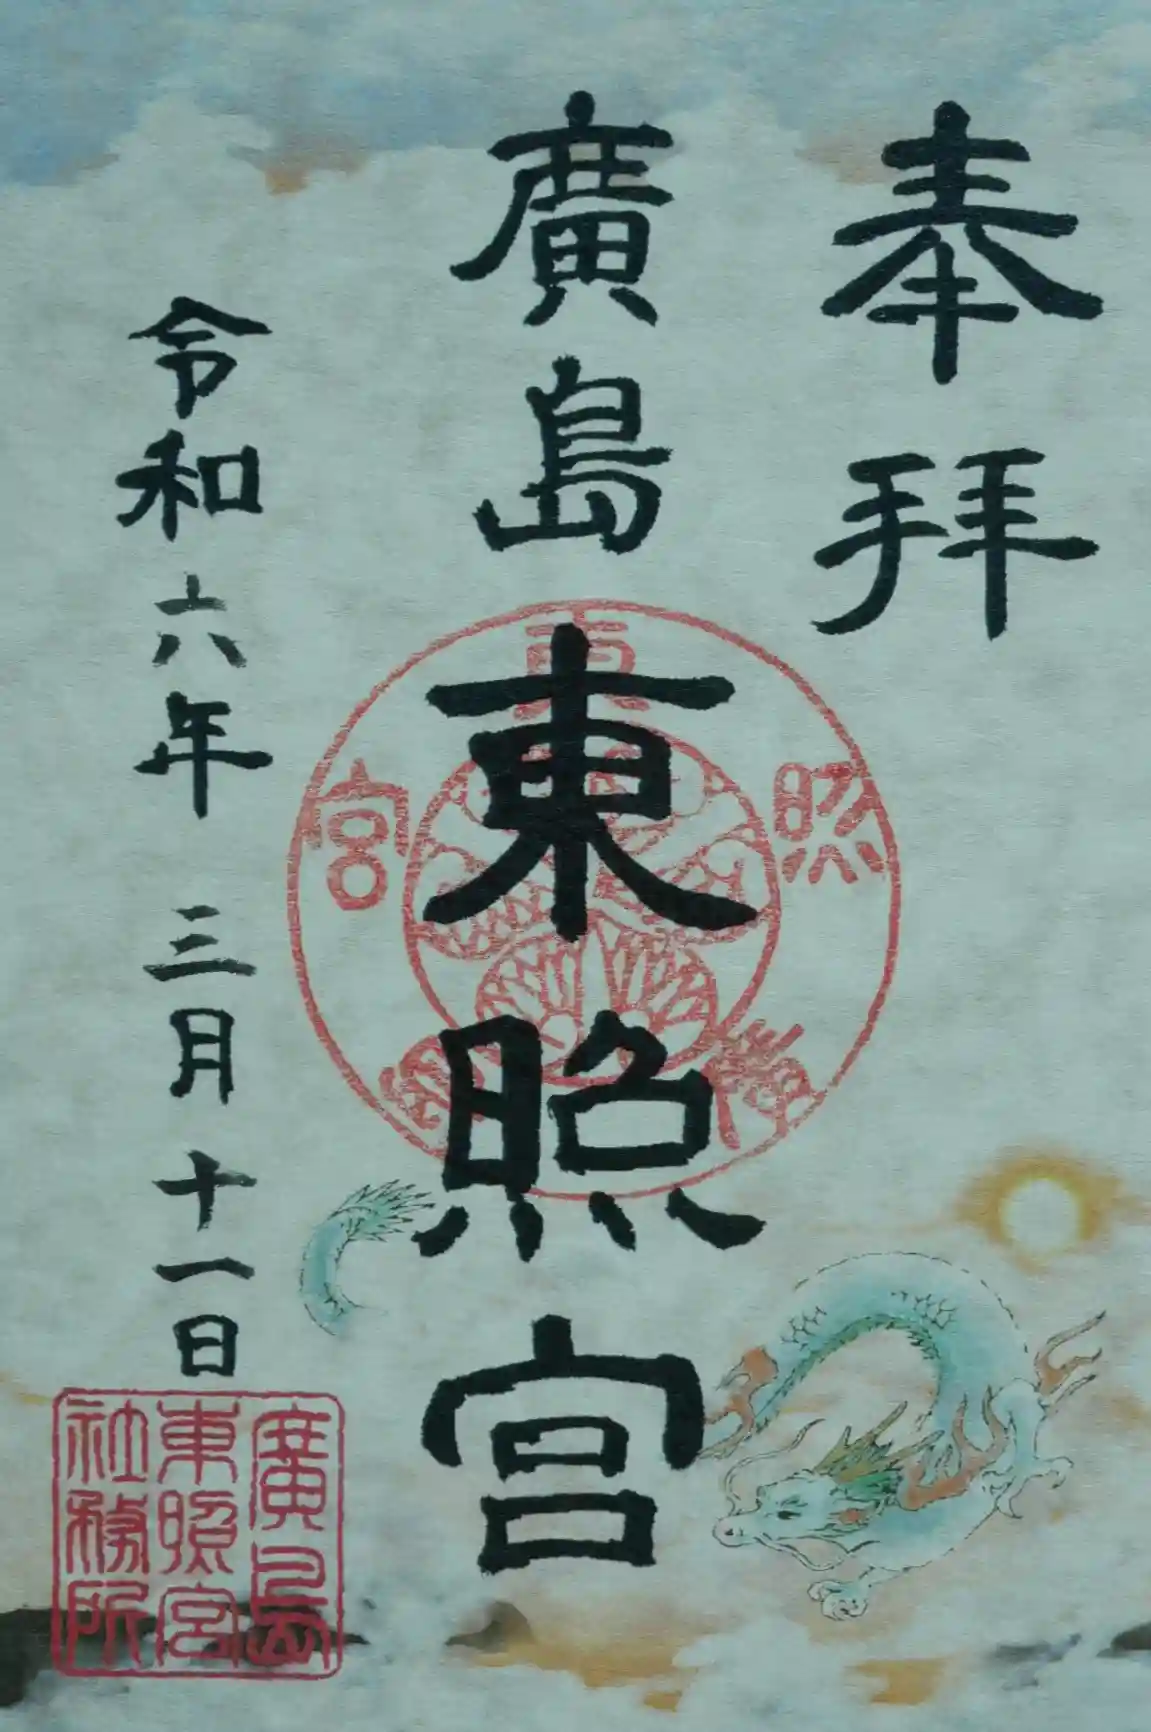 奉拝
廣島東照宮
令和六年 三月十一日
東照宮
廣島
東照宮
社務所